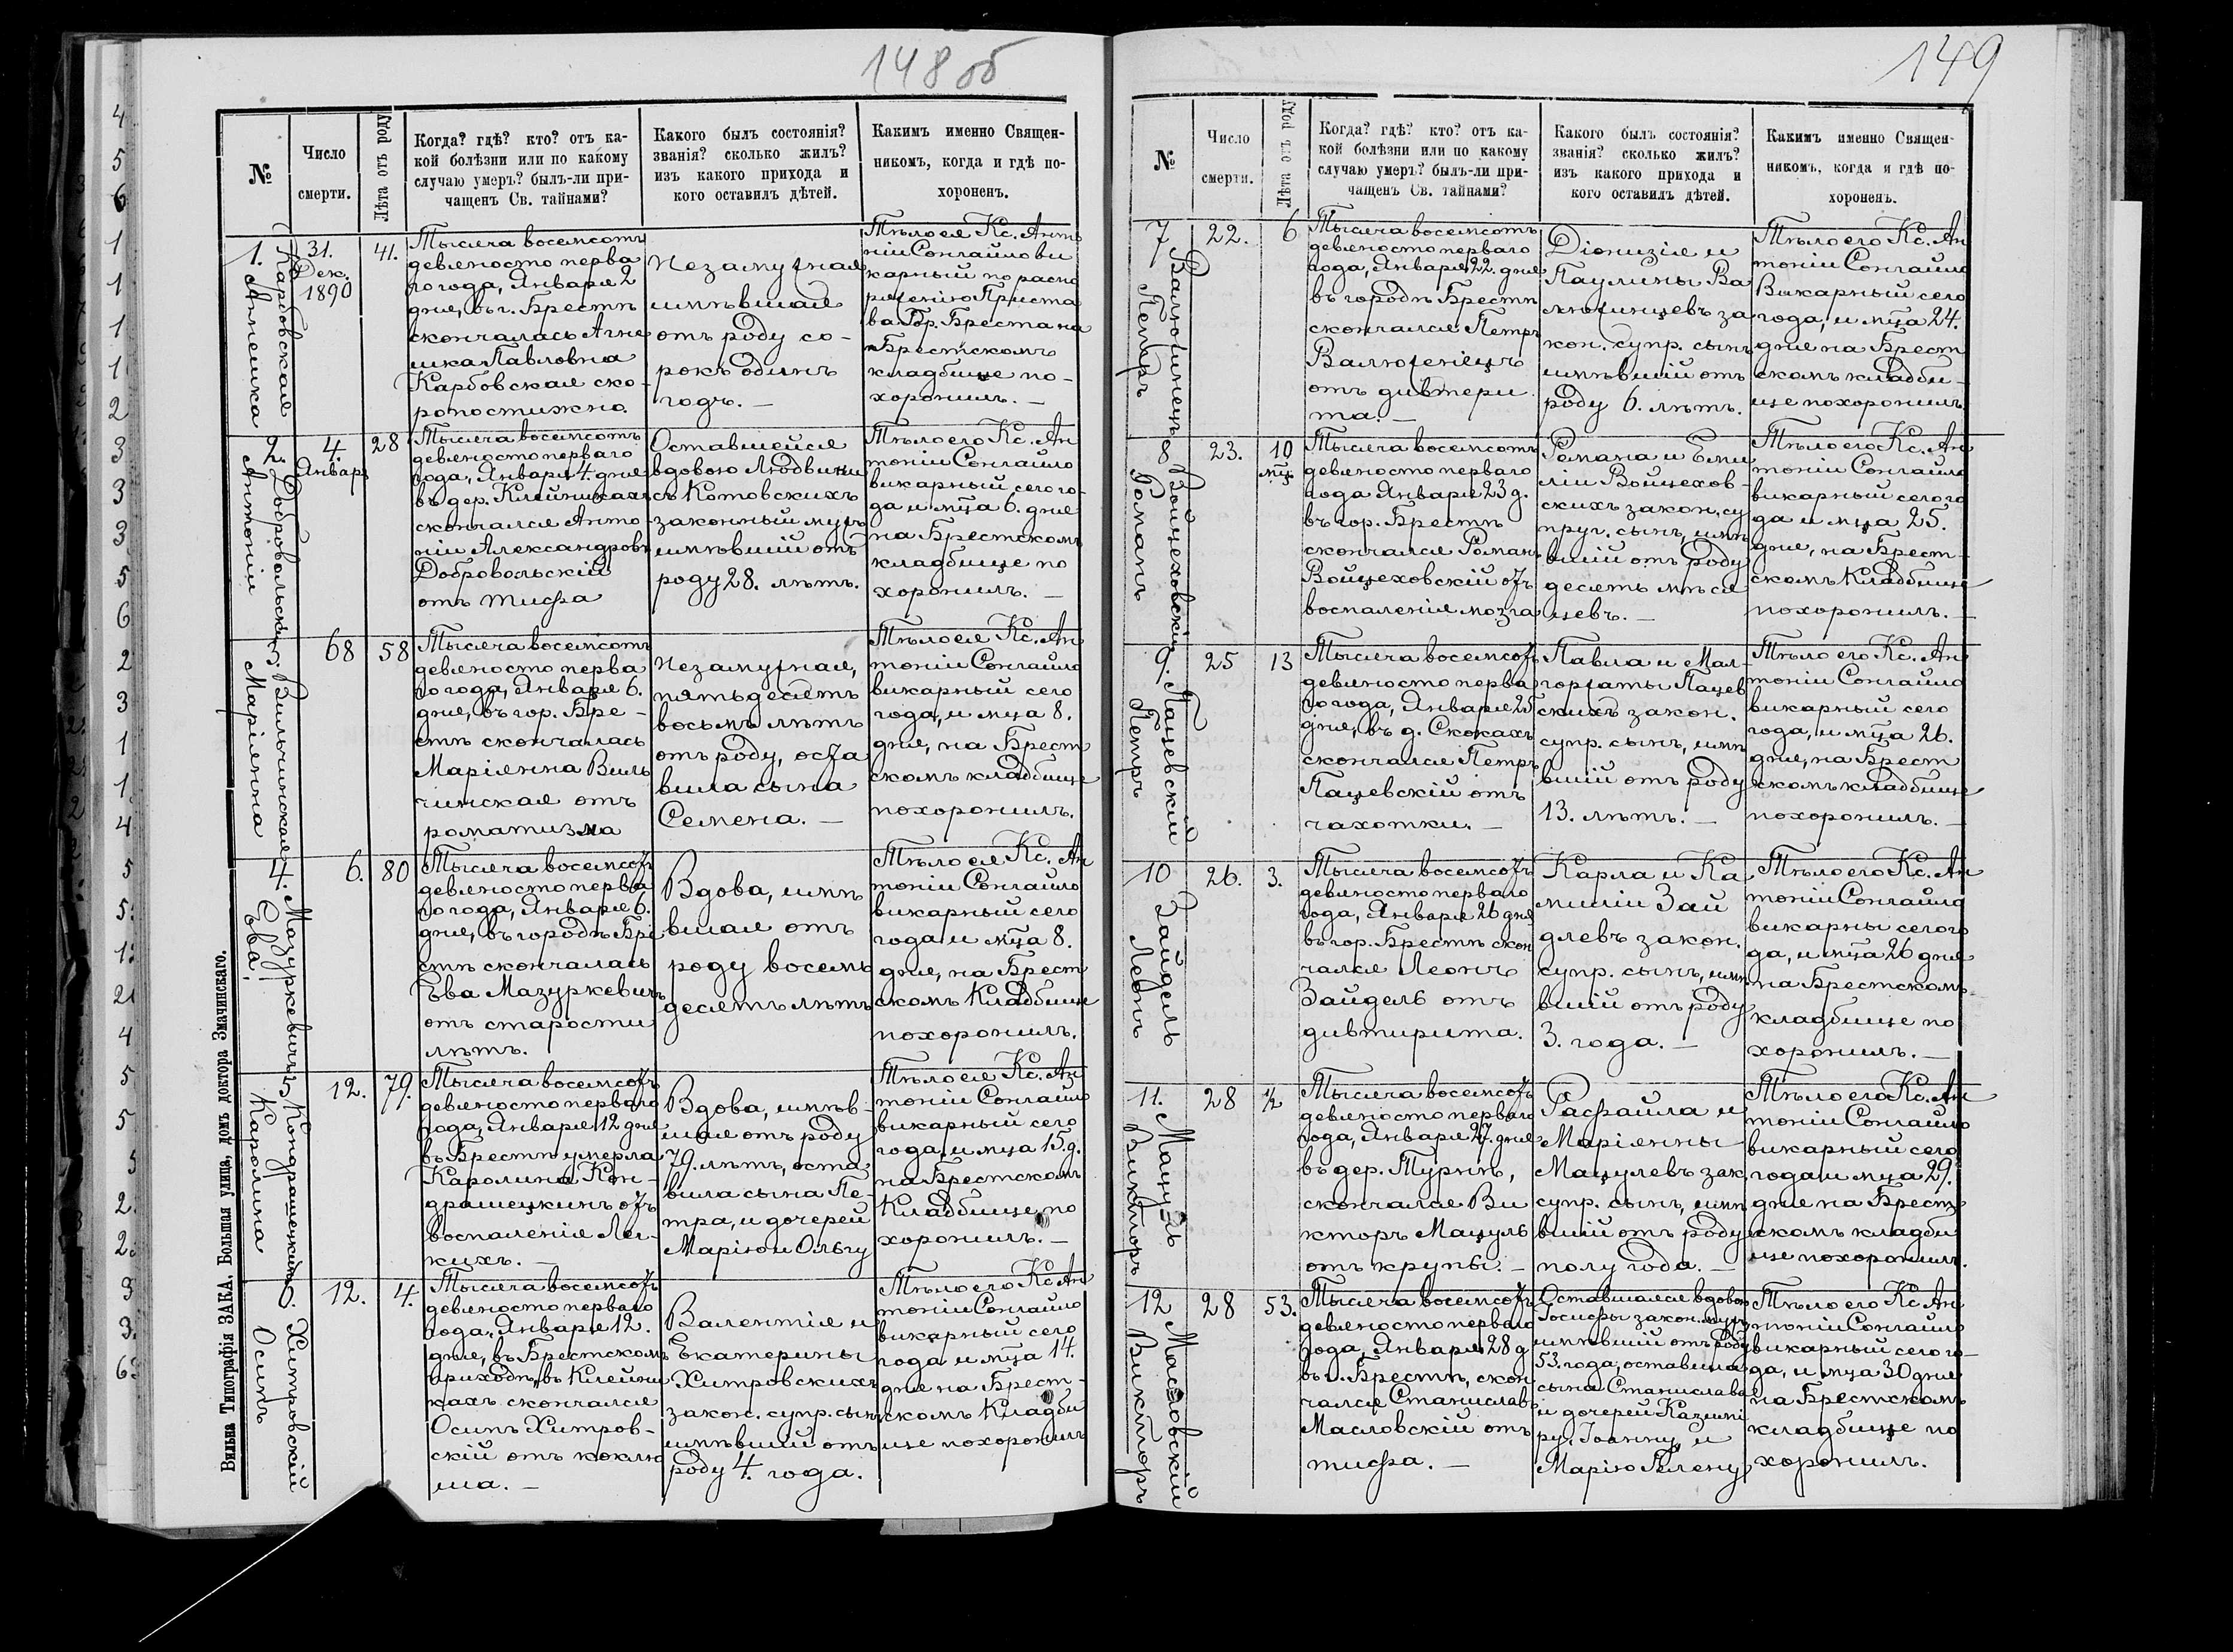 148 об
№
Число
смерти.
Лѣта отъ роду
Когда? гдѣ? кто? отъ ка-
кой болѣзни или по какому
случаю умеръ? былъ-ли при-
чащенъ Св. тайнами?
Какого былъ состоянія?
званія? сколько жилъ?
изъ какого прихода и
кого оставилъ дѣтей.
Какимъ именно Священ-
никомъ, когда и гдѣ по-
хороненъ.
1.
Карбовская
Агнешка
31.
Дек.
1890
41.
Тысяча восемсотъ
девяносто перва
го года, Января 2
дня, въ г. Брестѣ
скончалась Агне
шка Павловна
Карбовская ско-
ропостижно.
Незамужная
имѣвшая
отъ роду со-
рокъ одинъ
годъ. —
Тѣло ея Кс. Анто
ній Сонгайло ви
карный по распо
ряженію Приста
ва Гор. Бреста на
Брестскомъ
кладбище по-
хоронилъ. —
2.
Добровольскій
Антоній
4.
Январ
28
Тысяча восемсотъ
девяносто перваго
года, Января 4. дня
въ дер. Клейникахъ
скончался Анто
ній Александровъ
Добровольскій
отъ тифа
Оставшейся
вдовою Людвики
съ Котовскихъ
законный мужъ
имѣвшій отъ
роду 28. лѣтъ.
Тѣло его Кс. Ан
тоній Сонгайло
викарный сего го-
да и мца 6. дня
на Брестскомъ
кладбище по
хоронилъ. —
3.
Вильчинская
Маріянна
68
58
Тысяча восемсотъ
девяносто перва
го года, Января 6.
дня, въ гор. Бре-
стѣ скончалась
Маріянна Виль
чинская отъ
роматизма
Незамужная,
пятьдесятъ
восьмъ лѣтъ
отъ роду, оста
вила сына
Семена. —
Тѣло ея Кс. Ан
тоній Сонгайло
викарный сего
года, и мца 8.
дня, на Брест
скомъ кладбище
похоронилъ.
4.
Мазуркевичъ
Ева
6.
80
Тысяча восемсотъ
девяносто перва
го года, Января 6.
дня, въ городѣ Бре
стѣ скончалась
Ева Мазуркевичъ
отъ старости
лѣтъ.
Вдова, имѣ
вшая отъ
роду восемь
десятъ лѣтъ
Тѣло ея Кс. Ан
тоній Сонгайло
викарный сего
года и мца 8.
дня, на Брест
скомъ Кладбище
похоронилъ.
5
Кондрашецкинъ
Каролина
12.
79.
Тысяча восемсотъ
девяносто перваго
года, Января 12 дня
въ Брестѣ умерла
Каролина Кон-
драшецкинъ отъ
воспаленія Лег-
кихъ. —
Вдова, имѣв-
шая отъ роду
79. лѣтъ, оста
вила сына Пе-
тра, и дочерей
Марію и Ольгу
Тѣло ея Кс. Ан
тоній Сонгайло
викарный сего
года, и мца 15. д.
на Брестскомъ
Кладбище по
хоронилъ. —
6.
Хитровскій
Осипъ
12.
4.
Тысяча восемсотъ
девяносто перваго
года, Января 12.
дня, въ Брестскомъ
приходѣ, въ Клейни
кахъ скончался
Осипъ Хитров-
скій отъ коклю
ша. —
Валентія и
Екатерины
Хитровскихъ
закон. супр. сынъ
имѣвшій отъ
роду 4. года.
Тѣло его Кс. Ан
тоній Сонгайло
викарный сего
года и мца 14.
дня на Брест-
скомъ Кладби
ще похоронилъ
Вильна Типографія ЗАКА, Большая улица, домъ доктора Змачинскаго.
149
№
Число
смерти.
Лѣта отъ роду
Когда? гдѣ? кто? отъ ка-
кой болѣзни или по какому
случаю умеръ? былъ-ли при-
чащенъ Св. тайнами?
Какого былъ состоянія?
званія? сколько жилъ?
изъ какого прихода и
кого оставилъ дѣтей.
Какимъ именно Священ-
никомъ, когда и гдѣ по-
хороненъ.
7
Валюжинецъ
Петръ
22.
6
Тысяча восемсотъ
девяносто перваго
года, Января 22. дня
въ городѣ Брестѣ
скончался Петръ
Валюженецъ
отъ дивтери
та. —
Діонизія и
Паулины Ва
люжинцевъ за
кон. супр. сынъ
имѣвшій отъ
роду 6. лѣтъ.
Тѣло его Кс. Ан
тоній Сонгайло
Викарный сего
года, и мца 24.
дня на Брест
скомъ кладби-
ще похоронилъ
8
Войцеховскій
Романъ
23.
10
мц
Тысяча восемсотъ
девяносто перваго
года Января 23 д.
въ гор. Брестѣ
скончался Романъ
Войцеховскій отъ
воспаленія мозга
Романа и Еми
ліи Войцехов-
скихъ закон. су
пруг. сынъ, имѣ
вшій отъ роду
десять мѣся
цевъ. —
Тѣло его Кс. Ан
тоній Сонгайло
викарный сего го
да и мца 25.
дня, на Брест-
скомъ Кладбище
похоронилъ. —
9.
Пацевскій
Петръ
25
13
Тысяча восемсотъ
девяносто перва
го года, Января 25
дня, въ д. Скокахъ
скончался Петръ
Пацевскій отъ
чахотки. —
Павла и Мал-
горжаты Пацев
скихъ закон.
супр. сынъ, имѣ
вшій отъ роду
13. лѣтъ. —
Тѣло его Кс. Ан
тоній Сонгайло
викарный сего
года, и мца 26.
дня, на Брест
скомъ кладбище
похоронилъ. —
10
Зайдель
Леонъ
26.
3.
Тысяча восемсотъ
девяносто перваго
года, Января 26 дня
въ гор. Брестѣ скон
чался Леонъ
Зайдель отъ
дивтирита.
Карла и Ка
миліи Зай
длевъ закон.
супр. сынъ, имѣ
вшій отъ роду
3. года. —
Тѣло его Кс. Ан
тоній Сонгайло
викарны сего го
да, и мца 26 дня
на Брестскомъ
кладбище по
хоронилъ. —
11.
Мацуль
Викторъ
28
½
Тысяча восемсотъ
девяносто перваго
года, Января 27. дня
въ дер. Турнѣ,
скончался Ви
кторъ Мацуль
отъ крупы. —
Рафаила и
Маріянны
Мацулевъ зак.
супр. сынъ, имѣ
вшій отъ роду
полу года. —
Тѣло его Кс. Ан
тоній Сонгайло
викарный сего
года и мца 29.
дня на Брест
скомъ кладби
ще похоронилъ.
12
Масловскій
Викторъ
28
53.
Тысяча восемсотъ
девяносто перваго
года, Января 28 д
въ г. Брестѣ, скон
чался Станиславъ
Масловскій отъ
тифа. —
Оставшаяся вдовою
Іосифы закон. мужъ
имѣвшій отъ роду
53. года, оставила
сына Станислава
и дочерей Казими
ру, Іоанну, и
Марію Гелену
Тѣло его Кс. Ан
тоній Сонгайло
викарный сего го-
да, и мца 30 дня
на Брестскомъ
кладбище по
хоронилъ.